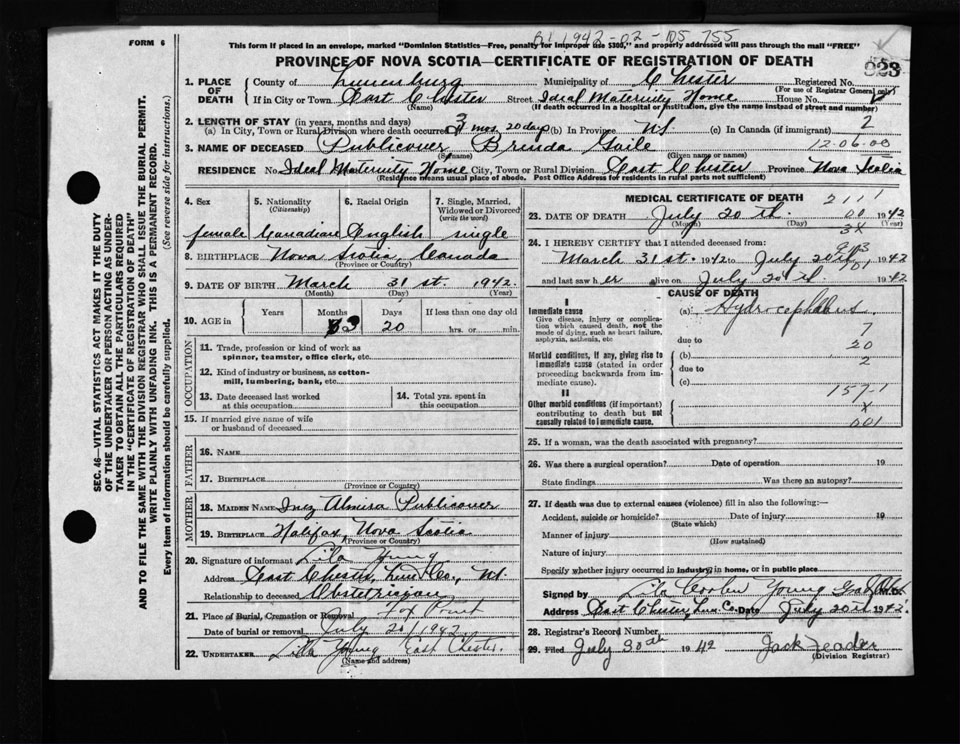 FORM 6
R1 1942-02-105 755
This form if placed in an envelope, marked "Dominion Statistics—Free, penalty for improper use $300," and properly addressed will pass through the mail "FREE"
PROVINCE OF NOVA SCOTIA—CERTIFICATE OF REGISTRATION OF DEATH
1. PLACE OF DEATH
County of Lunenburg Municipality of Chester Registered No.
(For use of Registrar General only)
If in City or Town East Chester Street Ideal Maternity Home House No.
(Name) (If death occurred in a hospital or institution, give the name instead of street and number)
2. LENGTH OF STAY (in years, months and days)
(a) In City, Town or Rural Division where death occurred 3 mos 20 days (b) In Province NS. (c) In Canada (if immigrant) 2
3. NAME OF DECEASED Publicover Brenda Gaile 12-06-00
(Surname) (Given name or names)
RESIDENCE No. Ideal Maternity Home City, Town or Rural Division East Chester Province Nova Scotia
(Residence means usual place of abode. Post Office Address for residents in rural parts not sufficient)
4. Sex
female
5. Nationality
(Citizenship)
Canadian
6. Racial Origin
English
7. Single, Married, Widowed or Divorced
(write the word)
single
8. BIRTHPLACE Nova Scotia, Canada
(Province or Country)
9. DATE OF BIRTH March 31st. 1942.
(Month) (Day) (Year)
10. AGE in
Years
Months
3
Days
20
If less than one day old
hrs. or min.
OCCUPATION
11. Trade, profession or kind of work as
spinner, teamster, office clerk, etc.
12. Kind of industry or business, as cotton-
mill, lumbering, bank, etc.
13. Date deceased last worked
at this occupation
14. Total yrs. spent in
this occupation
15. If married give name of wife
or husband of deceased
FATHER
16. NAME
17. BIRTHPLACE
(Province or Country)
MOTHER
18. MAIDEN NAME Inez Almira Publicover
19. BIRTHPLACE Halifax, Nova Scotia
(Province or Country)
20. Signature of informant Lila Young
Address East Chester, Lun. Co., NS.
Relationship to deceased Obstetrician
21. Place of Burial, Cremation or Removal Fox Point
Date of burial or removal July 20/1942
22. UNDERTAKER Lila Young East Chester.
(Name and address)
MEDICAL CERTIFICATE OF DEATH
2111
23. DATE OF DEATH July 20th. 00 1942
(Month) (Day) (Year)
3X
24. I HEREBY CERTIFY that I attended deceased from:
March 31st. 1942 to July 20th 1942
101
and last saw her alive on July 20th 1942
CAUSE OF DEATH
I
Immediate cause
Give disease, injury or complica-
tion which caused death, not the
mode of dying, such as heart failure,
asphyxia, asthenia, etc
(a) Hydrocephalus.
7
due to
20
Morbid conditions, if any, giving rise to
immediate cause (stated in order
proceeding backwards from im-
mediate cause).
(b) 2
due to
(c)
157-1
II
Other morbid conditions (if important)
contributing to death but not
causally related to immediate cause.
X
001
25. If a woman, was the death associated with pregnancy?
26. Was there a surgical operation? Date of operation 19
State findings Was there an autopsy?
27. If death was due to external causes (violence) fill in also the following:—
Accident, suicide or homicide? Date of injury 19
(State which)
Manner of injury
(How sustained)
Nature of injury
Specify whether injury occurred in industry, in home, or in public place
Signed by Lila Coolen Young
Address East Chester, Lun. Co. Date July 20th 1942
28. Registrar's Record Number
29. Filed July 30th 1942 Jack Zeader
(Division Registrar)
SEC. 46—VITAL STATISTICS ACT MAKES IT THE DUTY
OF THE UNDERTAKER OR PERSON ACTING AS UNDER-
TAKER TO OBTAIN ALL THE PARTICULARS REQUIRED
IN THE "CERTIFICATE OF REGISTRATION OF DEATH"
AND TO FILE THE SAME WITH THE DIVISION REGISTRAR WHO SHALL ISSUE THE BURIAL PERMIT.
WRITE PLAINLY WITH UNFADING INK. THIS IS A PERMANENT RECORD.
Every item of information should be carefully supplied. (See reverse side for instructions.)